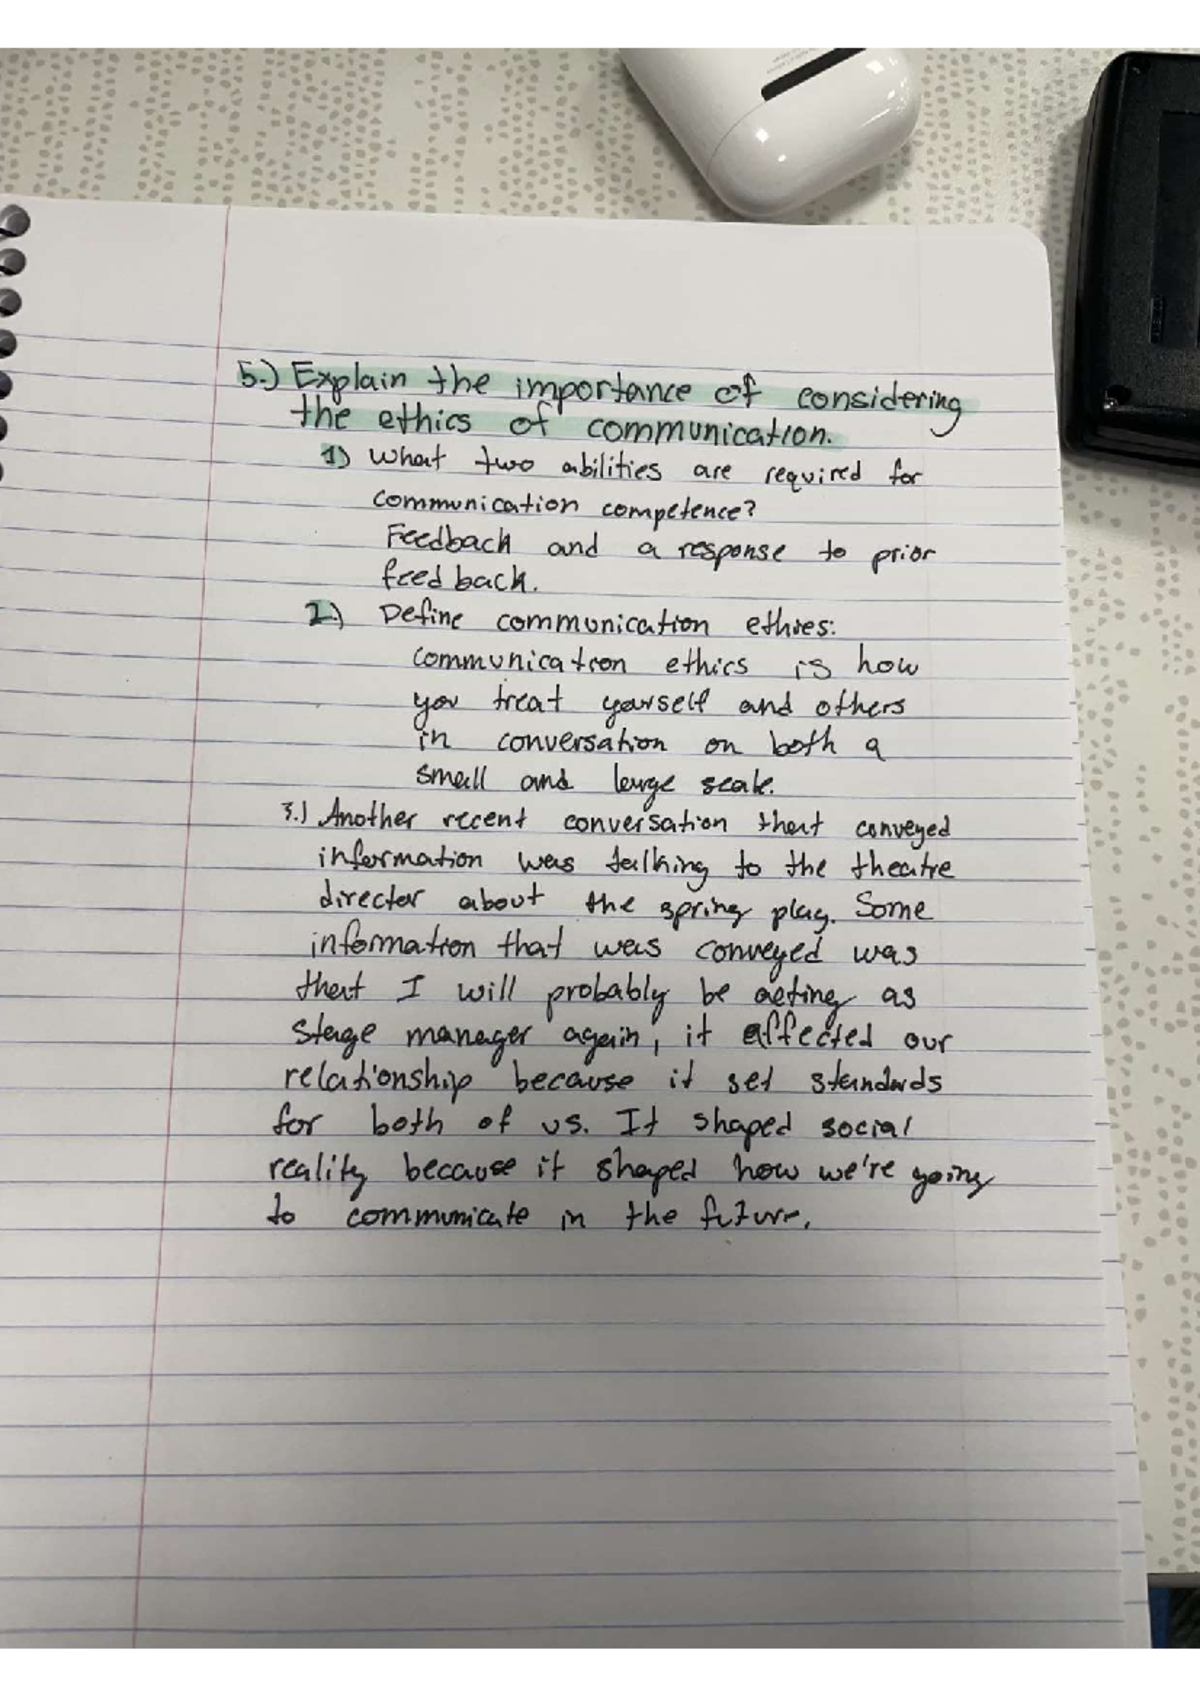 5.) Explain the importance of considering
the ethics of communication.
1) What two abilities are required for
communication competence?
Feedback and a response to prior
feedback.
2.) Define communication ethics:
communication ethics is how
you treat yourself and others
in conversation on both a
small and large scale.
3.) Another recent conversation that conveyed
information was talking to the theatre
director about the spring play. Some
information that was conveyed was
that I will probably be acting as
stage manager again, it affected our
relationship because it set standards
for both of us. It shaped social
reality because it shaped how we're going
to communicate in the future.